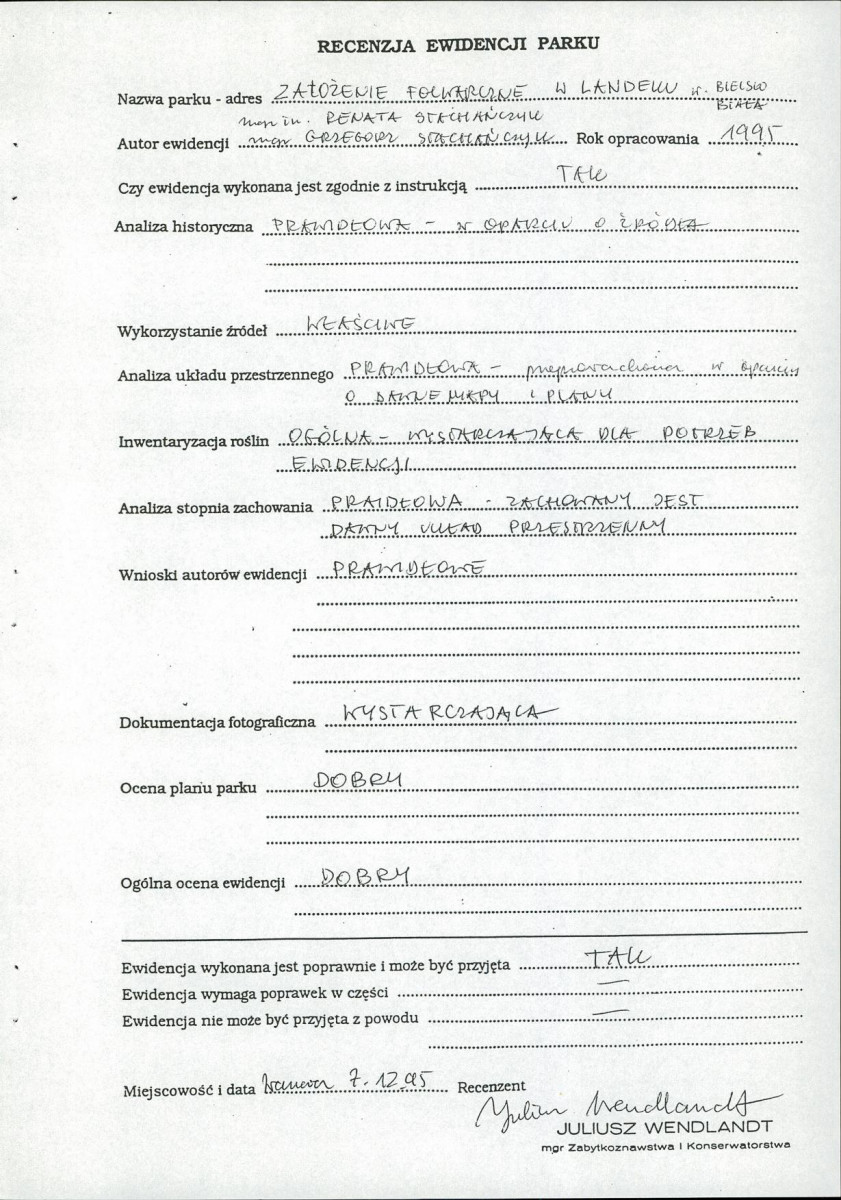 RECENZJA EWIDENCJI PARKU
Nazwa parku - adres ZAŁOŻENIE FOLWARCZNE W LANDEKU w. BIELSKO
BIAŁA
mgr in. RENATA STACHAŃCZYK
Autor ewidencji mgr GRZEGORZ STACHAŃCZYK Rok opracowania 1995
Czy ewidencja wykonana jest zgodnie z instrukcją TAK
Analiza historyczna PRAWIDŁOWA - W OPARCIU O ŹRÓDŁA
Wykorzystanie źródeł WŁAŚCIWE
Analiza układu przestrzennego PRAWIDŁOWA - przeprowadzona w oparciu
O DAWNE MAPY I PLANY
Inwentaryzacja roślin OGÓLNA - WYSTARCZAJĄCA DLA POTRZEB
EWIDENCJI
Analiza stopnia zachowania PRAIDŁOWA - ZACHOWANY JEST
DAWNY UKŁAD PRZESTRZENNY
Wnioski autorów ewidencji PRAWIDŁOWE
Dokumentacja fotograficzna WYSTARCZAJĄCA
Ocena planu parku DOBRY
Ogólna ocena ewidencji DOBRY
Ewidencja wykonana jest poprawnie i może być przyjęta TAK
Ewidencja wymaga poprawek w części —
Ewidencja nie może być przyjęta z powodu —
Miejscowość i data 7.12.95 Recenzent
Juliusz Wendlandt
JULIUSZ WENDLANDT
mgr Zabytkoznawstwa i Konserwatorstwa